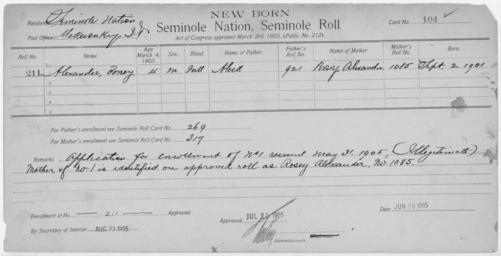 NEW BORN
Residence Seminole Nation, Card No. 104
Seminole Nation, Seminole Roll.
Post Office I.T.
Act of Congress approved March 3rd, 1905, (Public No. 212).
Roll No. Age March 4, 1905. Sex. Blood. Name of Father. Father's Roll No. Name of Mother Mother's Roll No. Born.
211 Alexander, Toney 4 M Full Aleck 921 Rosey Alexander 1085 Sept. 2, 1901
2
3
4
5
For Father's enrollment see Seminole Roll Card No. 269
For Mother's enrollment see Seminole Roll Card No. 317
Remarks Application for enrollment of No 1 received May 31, 1905, (Illegitimate)
Mother of No. 1 is identified on approved roll as Rosey Alexander, No 1085
Enrollment of No. 211 Approved Approved JUL 22 1905 Date JUN 28 1905
By Secretary of Interior AUG 23 1905